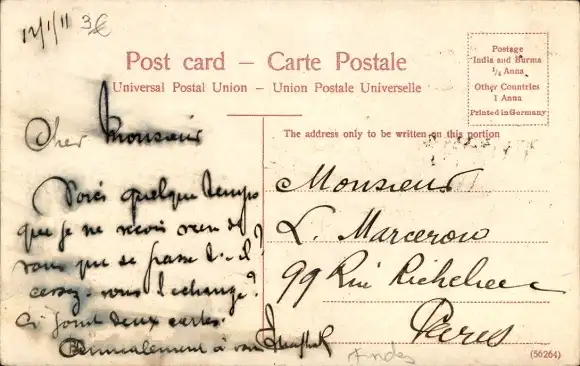 12/1/11 3€
Post card – Carte Postale
Universal Postal Union – Union Postale Universelle
Postage
India and Burma
½ Anna
Other Countries
1 Anna
Printed in Germany
The address only to be written on this portion
Cher Monsieur
Voici quelque temps
que je ne reçois rien de
vous que se passe t-il?
cessez-vous l'echange?
Ci joint deux cartes.
à vous
Monsieur
L. Marcerou
99 Rue Richelieu
Paris
Indes
(56264)